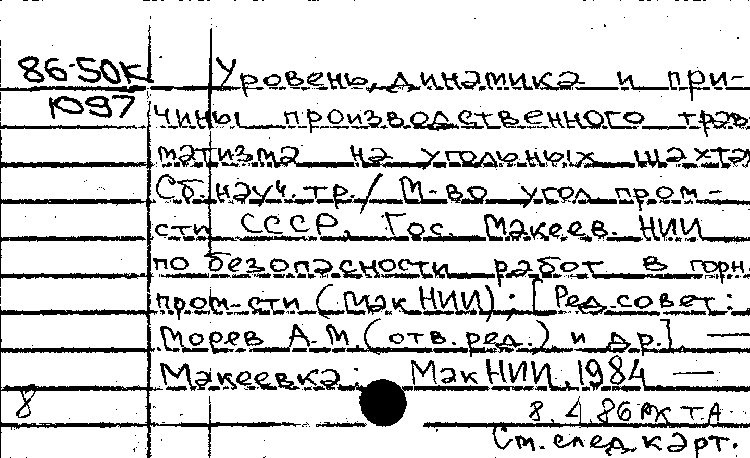 86-50К Уровень, динамика и при-
1097 чины производственного трав
матизма на угольных шахтах
Сб. науч. тр. / М-во угол пром-
сти СССР, Гос. Макеев. НИИ
по безопасности работ в горн.
пром-сти (МакНИИ); [Ред. совет:
Морев А.М. (отв. ред.) и др.] —
Макеевка: МакНИИ, 1984 —
8 8.4.86 ТА
См. след. карт.